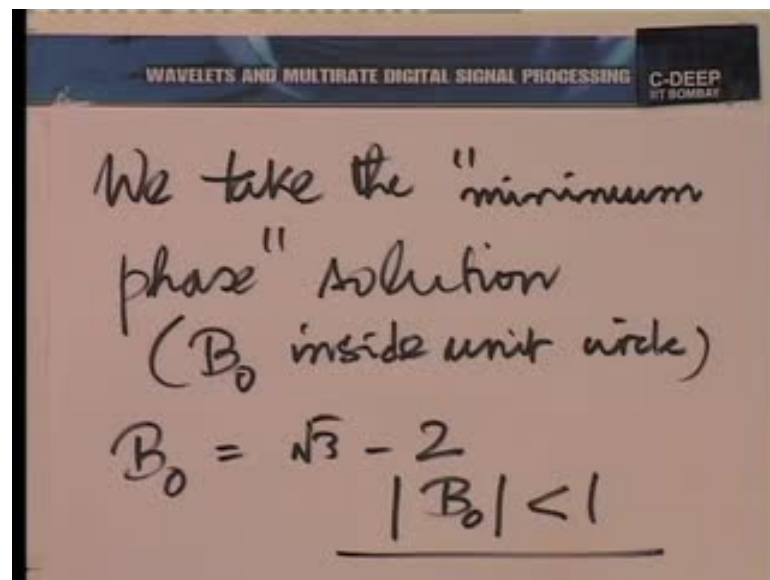 WAVELETS AND MULTIRATE DIGITAL SIGNAL PROCESSING C-DEEP
IIT BOMBAY
We take the "minimum
phase" solution
(B₀ inside unit circle)
B₀ = √3 - 2
|B₀| < 1